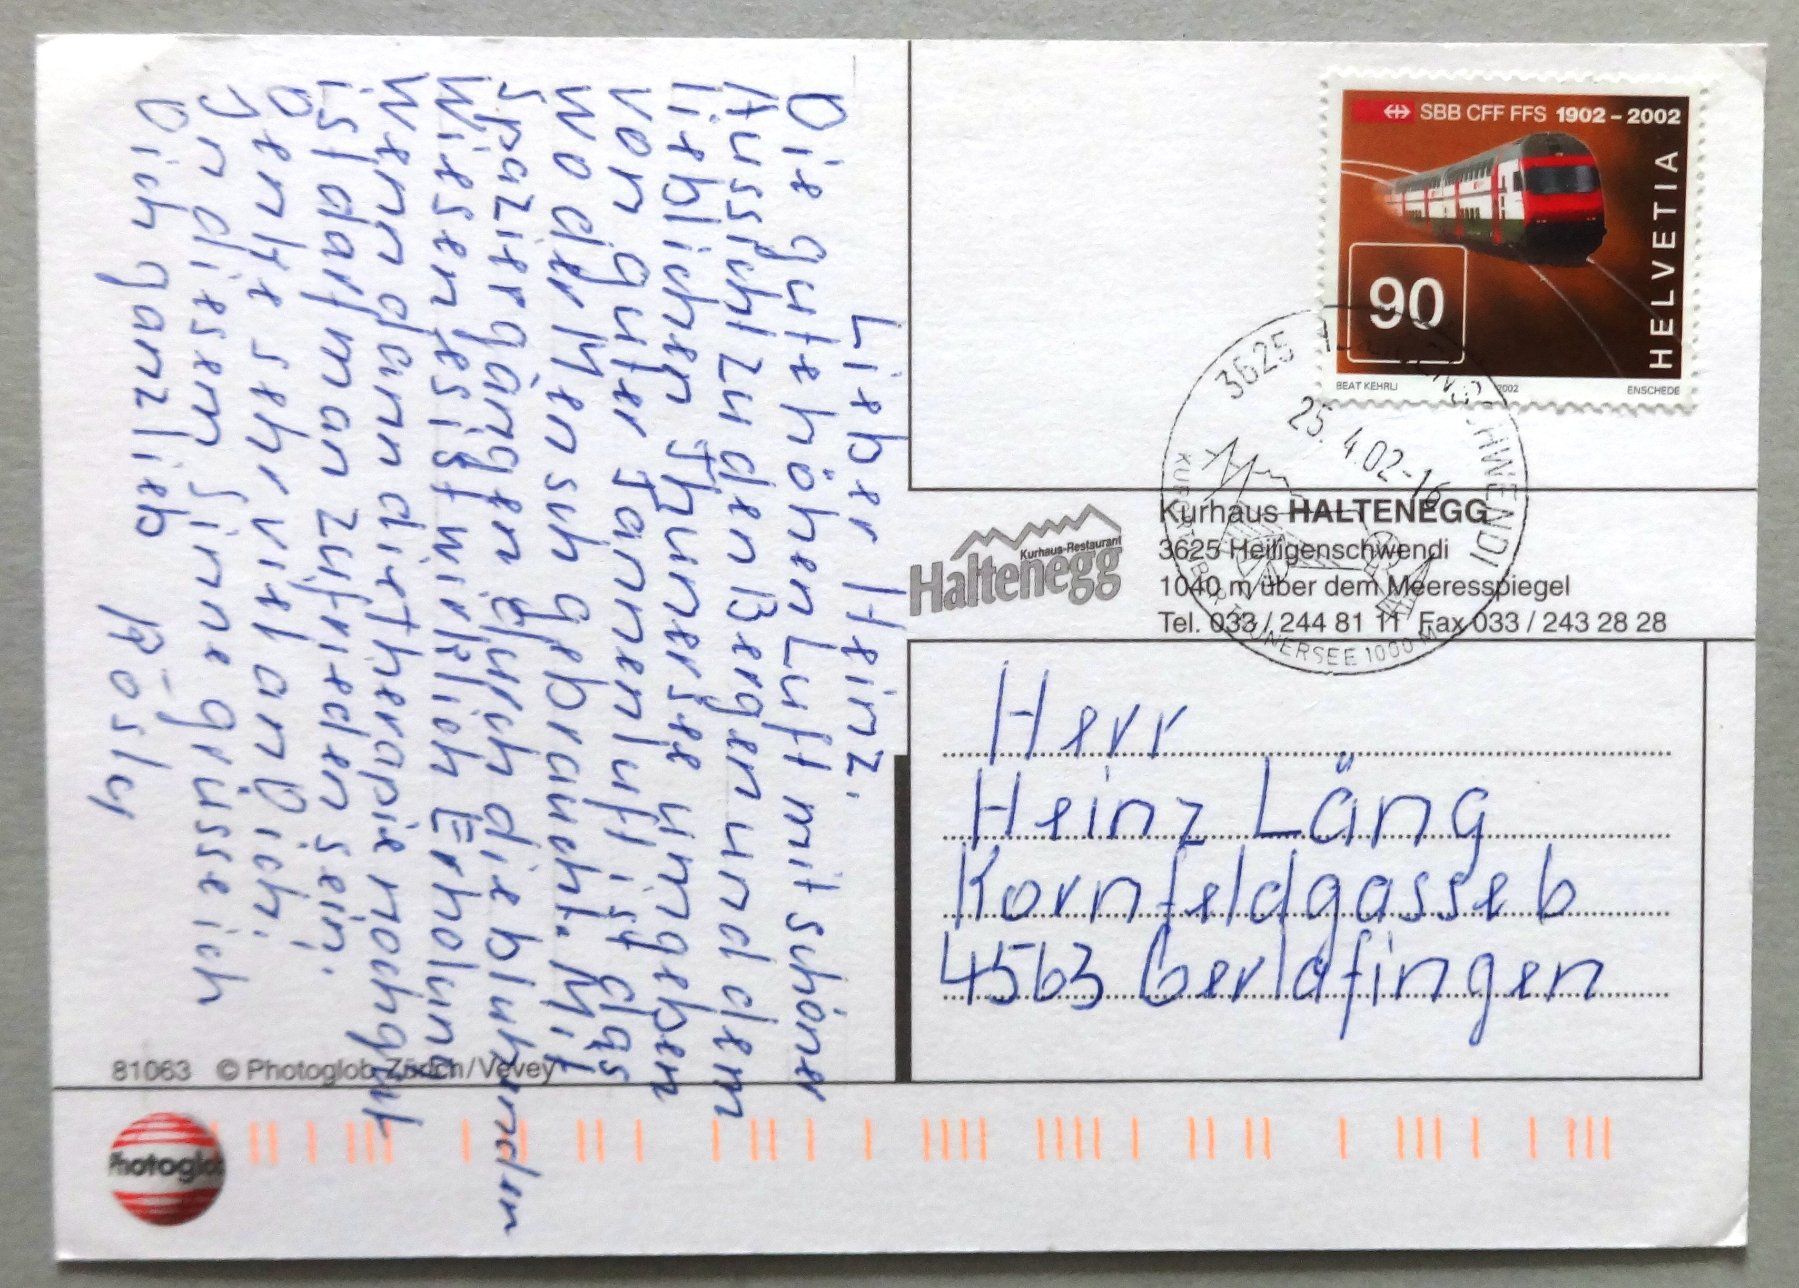 Lieber Heinz.
Die gute höhenluft mit schöner
Aussicht zu den Bergen und dem
lieblichen Thunersee umgeben
von guter Tannenluft ist das
wo der Mensch gebraucht. Mit
Spaziergängen durch die blühenden
Wiesen es ist wirklich Erholung
wenn dann die therapie noch gut
ist darf man zufrieden sein.
Denke sehr viel an Dich.
In diesem Sinne grüsse ich
Dich ganz lieb Rösly
SBB CFF FFS 1902 – 2002
HELVETIA
90
BEAT KEHRLI 2002 ENSCHEDE
3625 HEILIGENSCHWENDI
25.4.02-16
KURORT ÜBER THUNERSEE 1000 M
Kurhaus-Restaurant
Haltenegg
Kurhaus HALTENEGG
3625 Heiligenschwendi
1040 m über dem Meeresspiegel
Tel. 033 / 244 81 11 Fax 033 / 243 28 28
Herr
Heinz Läng
Kornfeldgasse 6
4563 Gerlafingen
81063 © Photoglob, Zürich/Vevey
Photoglob